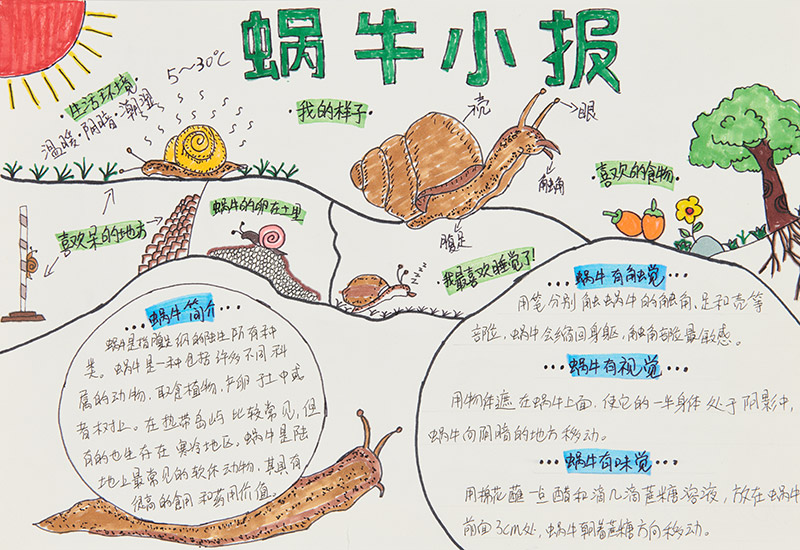 蜗牛小报
5~30℃
·生活环境·
温暖·阴暗·潮湿
·我的样子·
壳
眼
触角
腹足
喜欢的食物
喜欢呆的地方
蜗牛的卵在土里
我最喜欢睡觉了!
···蜗牛简介···
蜗牛是指腹足纲的陆生所有种
类。蜗牛是一种包括许多不同科
属的动物,取食植物,产卵于土中或
者树上。在热带岛屿比较常见,但
有的也生存在寒冷地区。蜗牛是陆
地上最常见的软体动物,其具有
很高的食用和药用价值。
···蜗牛有触觉···
用笔分别触蜗牛的触角、足和壳等
部位,蜗牛会缩回身躯,触角部位最敏感。
···蜗牛有视觉
用物体遮在蜗牛上面,使它的一半身体处于阴影中,
蜗牛向阴暗的地方移动。
···蜗牛有味觉
用棉花蘸一点醋和滴几滴蔗糖溶液,放在蜗牛
前面3cm处,蜗牛朝着蔗糖方向移动。